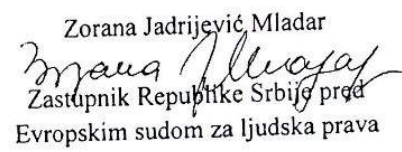 Zorana Jadrijević Mladar
Zastupnik Republike Srbije pred
Evropskim sudom za ljudska prava